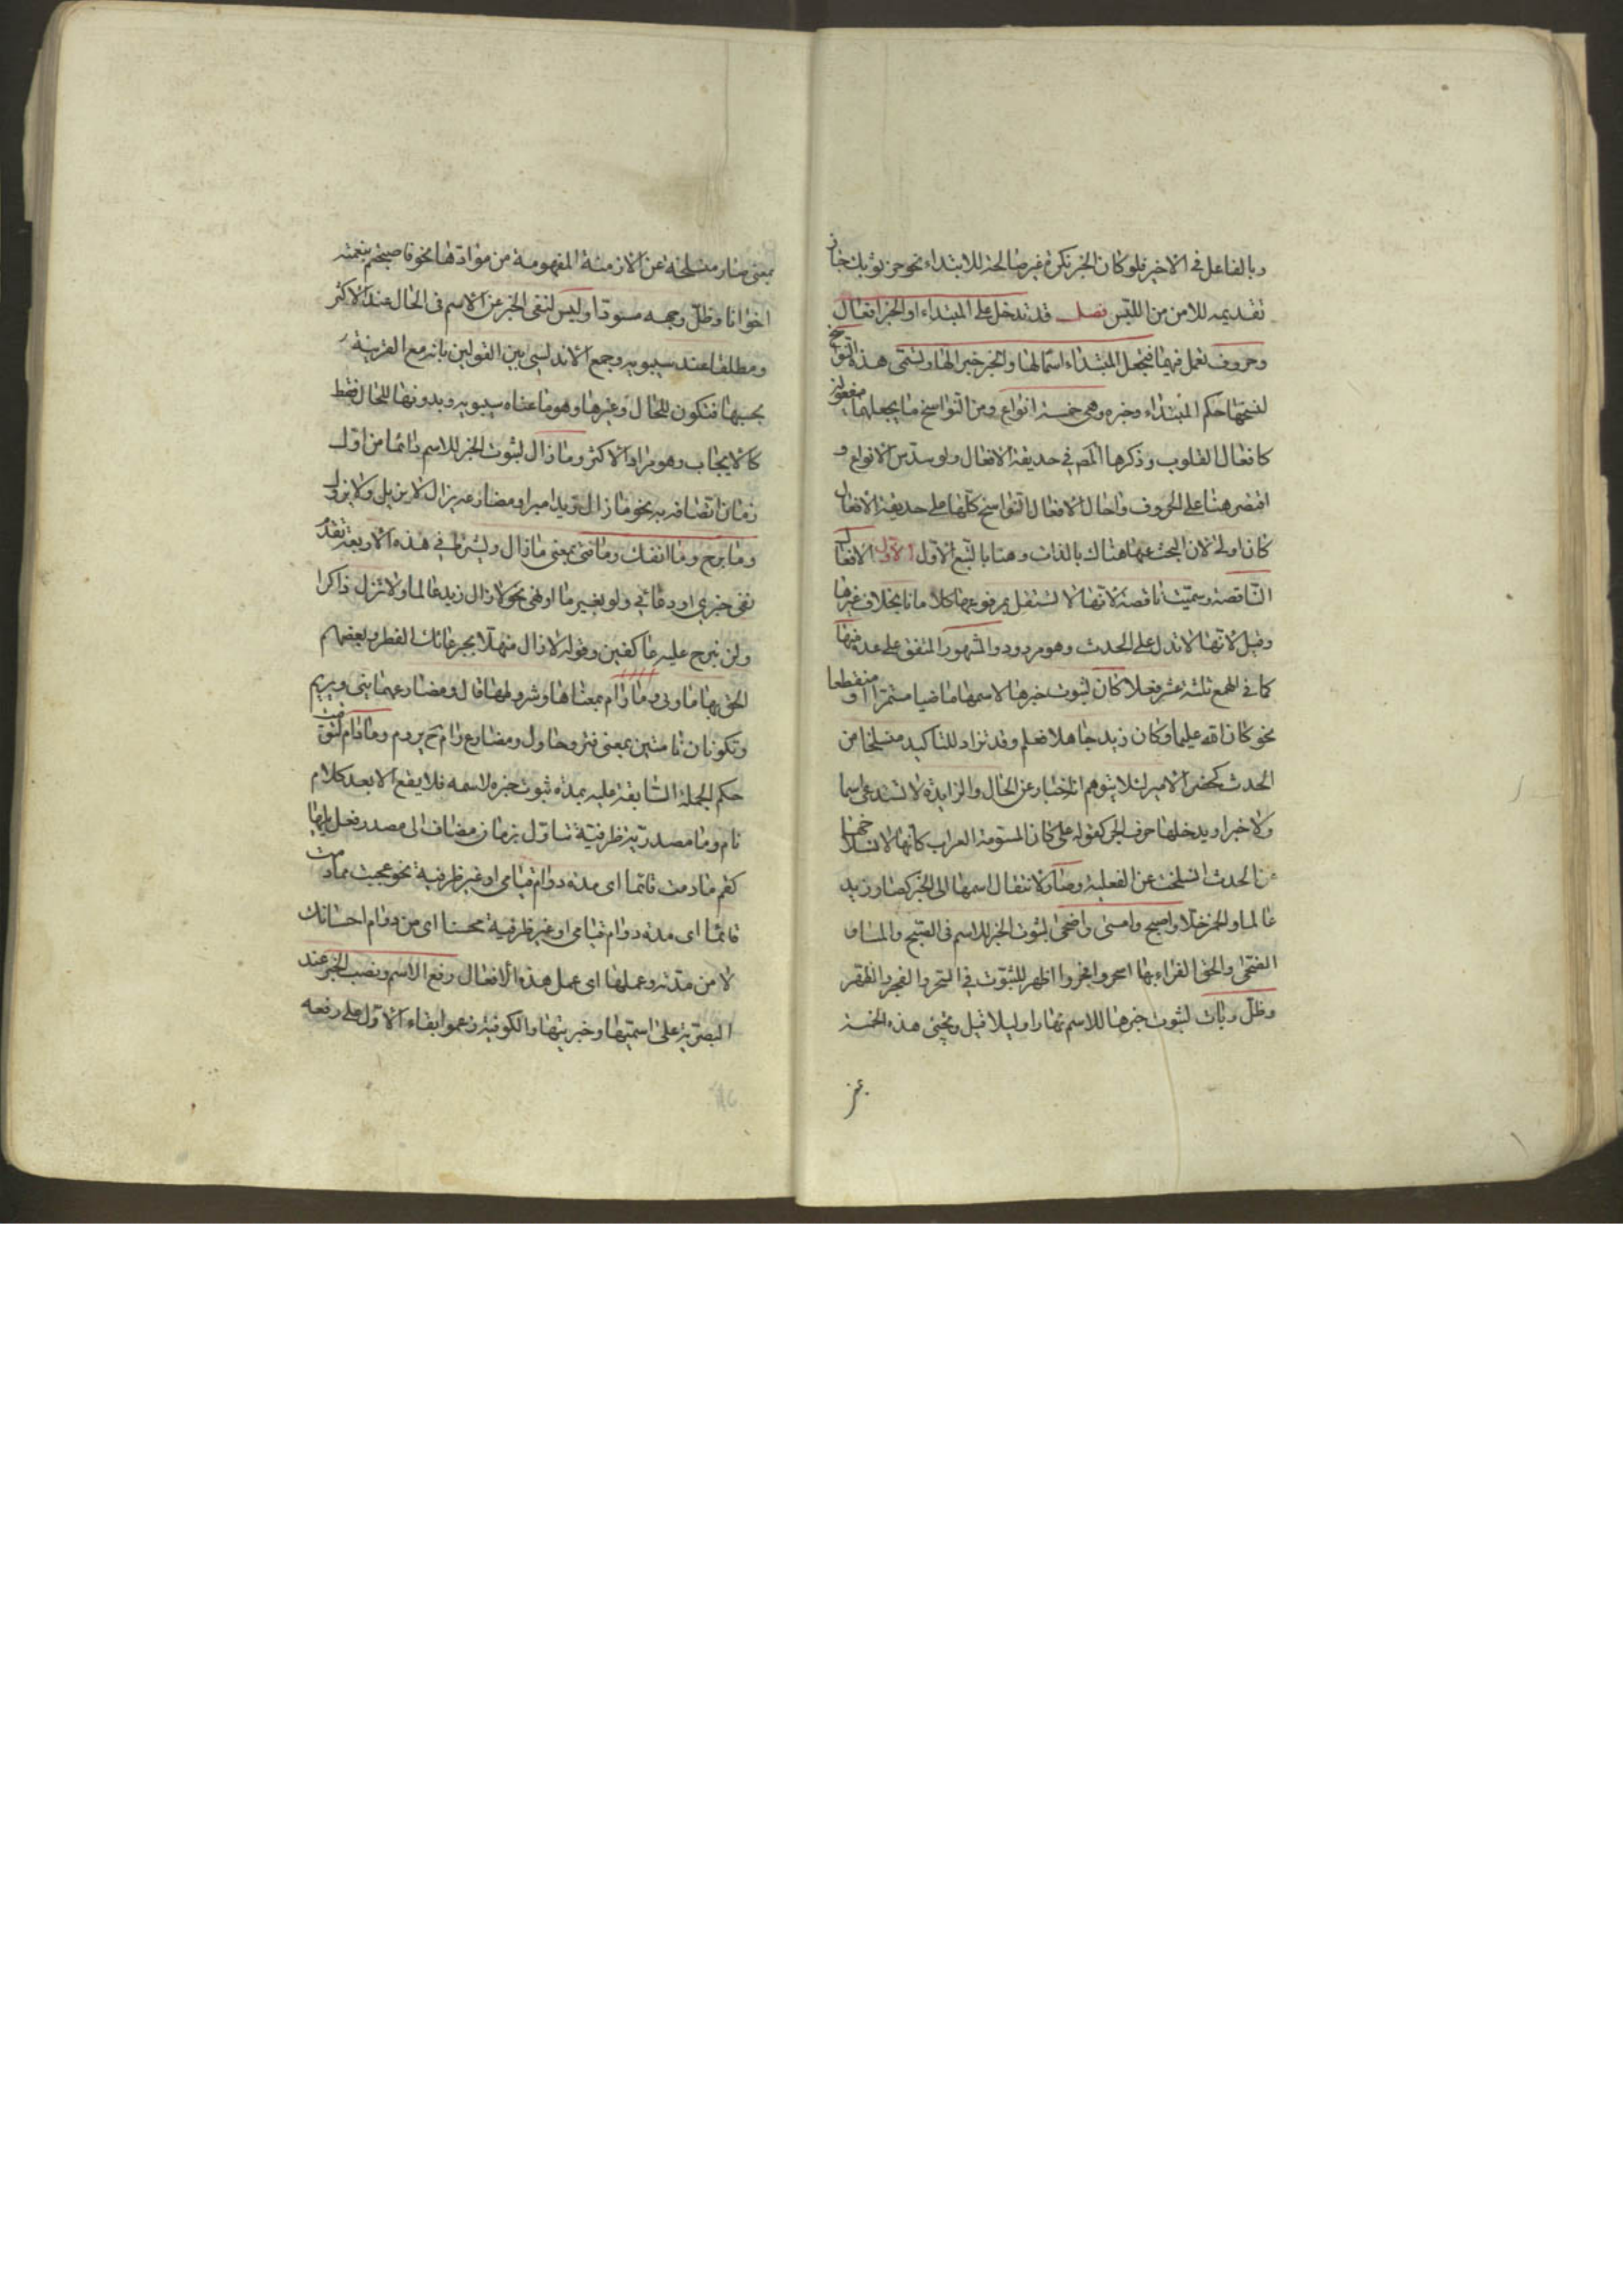 وبالفاعل في الاخير فلو كان الخبر نكرة غير صالحة للابتداء نحو خز ثوبك جاز
تقديمه للامن من اللبس فصل قد تدخل على المبتداء او الخبر افعال
وحروف تعمل فيهما فتجعل المبتداء اسما لها والخبر خبرا لها وتسمى هذه النواسخ
لنسخها حكم المبتداء وخبره وهى خمسة انواع ومن النواسخ ما يجعلهما مفعولين
كافعال القلوب وذكرها المص في حديقة الافعال ولو سدس الانواع و
اقتصر هنا على الحروف واحال الافعال النواسخ كلها على حديقة الافعال
كان اولى لان البحث عنها هناك بالذات وهنا بالتبع الاول الاول الافعال
الناقصة وسميت ناقصة لانها لا تستقل بمرفوعها كلاما تاما بخلاف غيرها
وقيل لانها لا تدل على الحدث وهو مردود والمشهور المتفق على عده منها
كما في الهمع ثلثة عشر فعلا كان لثبوت خبرها لاسمها ماضيا مستمرا او منقطعا
نحو كان الله عليما وكان زيد جاهلا فعلم وقد تزاد للتاكيد منسلخا من
الحدث كحضر الامير لئلا يتوهم انه اخبار عن الحال والزايدة لا تستدعى اسما
ولا خبرا ويدخلها حرف الجر كقوله على كان المسومة العراب كانها لانسلاخها
عن الحدث انسلخت عن الفعلية وصار لانتقال اسمها الى الخبر كصار زيد
عالما والخمر خلا واصبح وامسى واضحى لثبوت الخبر للاسم في الصبح والمساء و
الضحى والحق الفراء بها اسحر وافجر واظهر للثبوت في السحر والفجر والظهر
وظل وبات لثبوت خبرها للاسم نهارا وليلا قيل وتجئ هذه الخمسة
بمعنى صار منسلخة عن الازمنة المفهومة من موادها نحو فاصبحتم بنعمته
اخوانا وظل وجهه مسودا وليس لنفى الخبر عن الاسم في الحال عند الاكثر
ومطلقا عند سيبويه وجمع الاندلسى بين القولين بانه مع القرينة
بحسبها فتكون للحال وغيرها وهو ما عناه سيبويه وبدونها للحال فقط
كالايجاب وهو مراد الاكثر وما زال لثبوت الخبر للاسم دائما من اول
زمان اتصافه به نحو ما زال زيد اميرا ومضارعه يزال لا يزيل ولا يزول
وما برح وما انفك وما فتئ بمعنى ما زال ويشترط في هذه الاربعة تقدم
نفى خبرى او دعائي ولو بغير ما او نهى نحو لا زال زيد عالما ولا تزل ذاكرا
ولن نبرح عليه عاكفين وقوله لا زال منهلا بجرعائك القطر وبعضهم
الحق بها ما ونى وما رام بمعناها وشروطها قال ومضارعهما ينى ويريم
وتكونان تامتين بمعنى فتر وحاول ومضارع رام ح يروم وما دام لتوقيت
حكم الجملة السابقة عليه بمدة ثبوت خبره لاسمه فلا يقع الا بعد كلام
تام وما مصدرية ظرفية تتاول بزمان مضاف الى مصدر فعل يليها
كقم ما دمت قائما اى مدة دوام قيامى او غير ظرفية نحو عجبت مما دمت
قائما اى مدة دوام قيامى او غير ظرفية محسنا اى من دوام احسانك
لا من مدته وعملها اى عمل هذه الافعال رفع الاسم ونصب الخبر عند
البصرية على اسميتها وخبريتها والكوفية زعموا بقاء الاول على رفعه